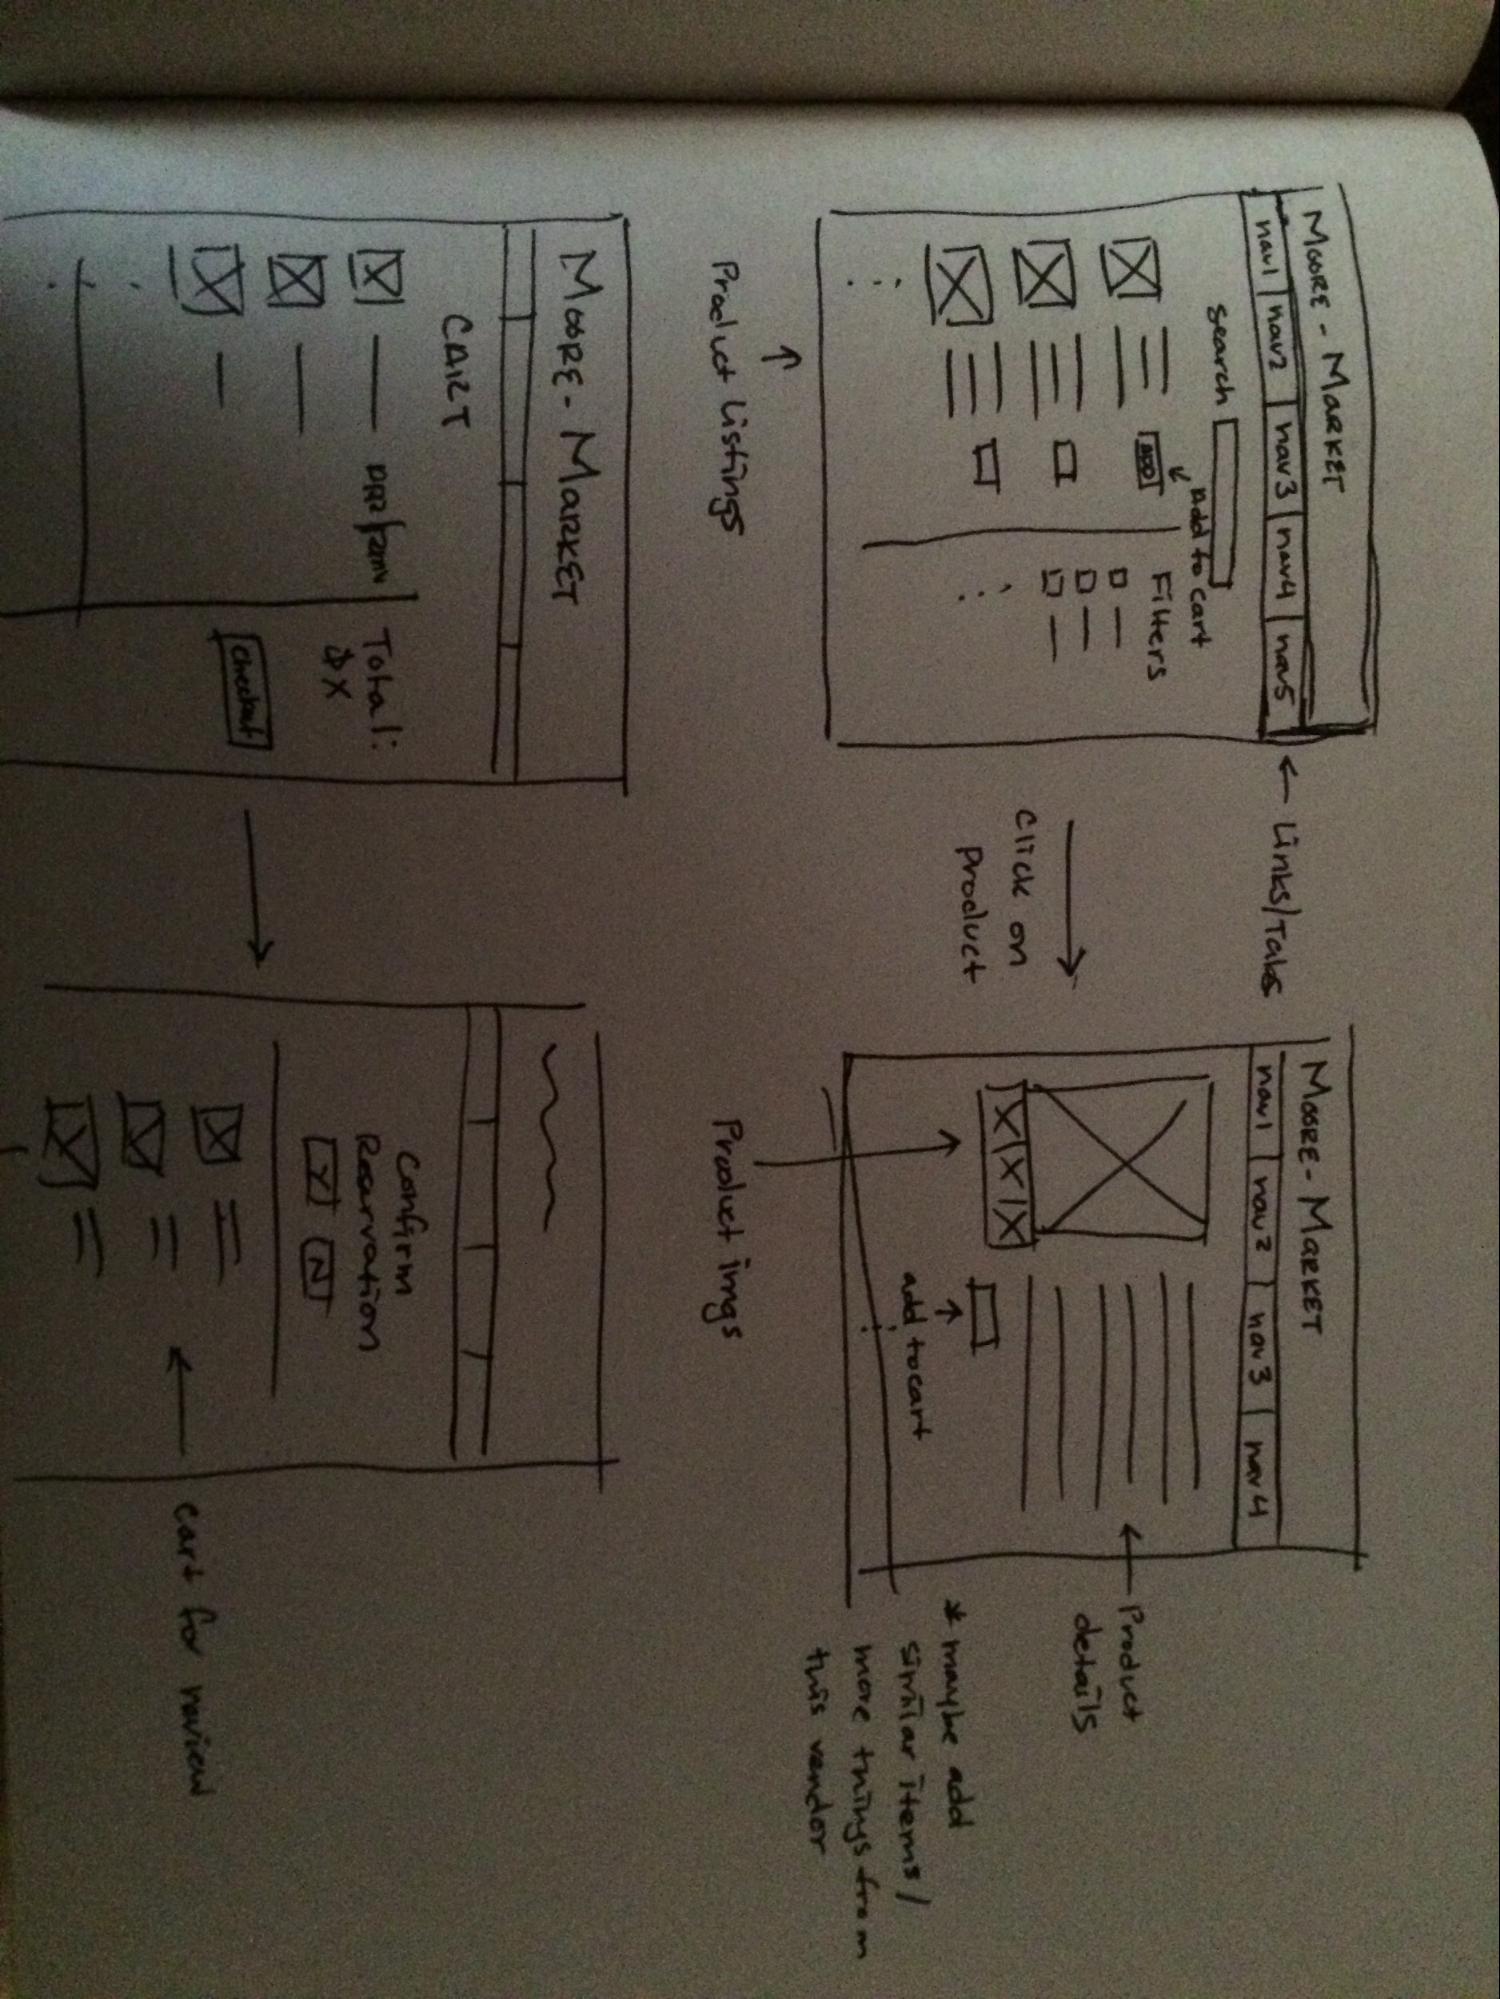 MOORE-MARKET
nav1 nav2 nav3 nav4 nav5
← Links/Tabs
search
add to cart
ADD
Filters
Product Listings
click on
product
MOORE-MARKET
nav1 nav2 nav3 nav4
← Product
details
add to cart
Product imgs
* maybe add
similar items/
more things from
this vendor
MOORE-MARKET
CART
Total:
$X
Checkout
Confirm
Reservation
Y N
cart for review